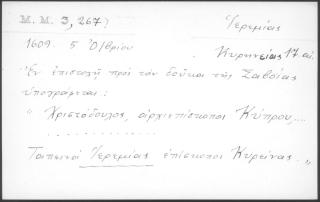 Μ. Μ. 3, 267) Ἱερεμίας
1609. 5 Ὀ/βρίου Κυρηνείας 17 αἰ.
Ἐν ἐπιστολῇ πρὸς τὸν δοῦκα τῆς Σαβοΐας
ὑπογράφεται :
" Χριστόδουλος, ἀρχιεπίσκοπος Κύπρου, ...
. . . . . . . . . . . . . .
Ταπεινὸς Ἱερεμίας ἐπίσκοπος Κυρήνας. "